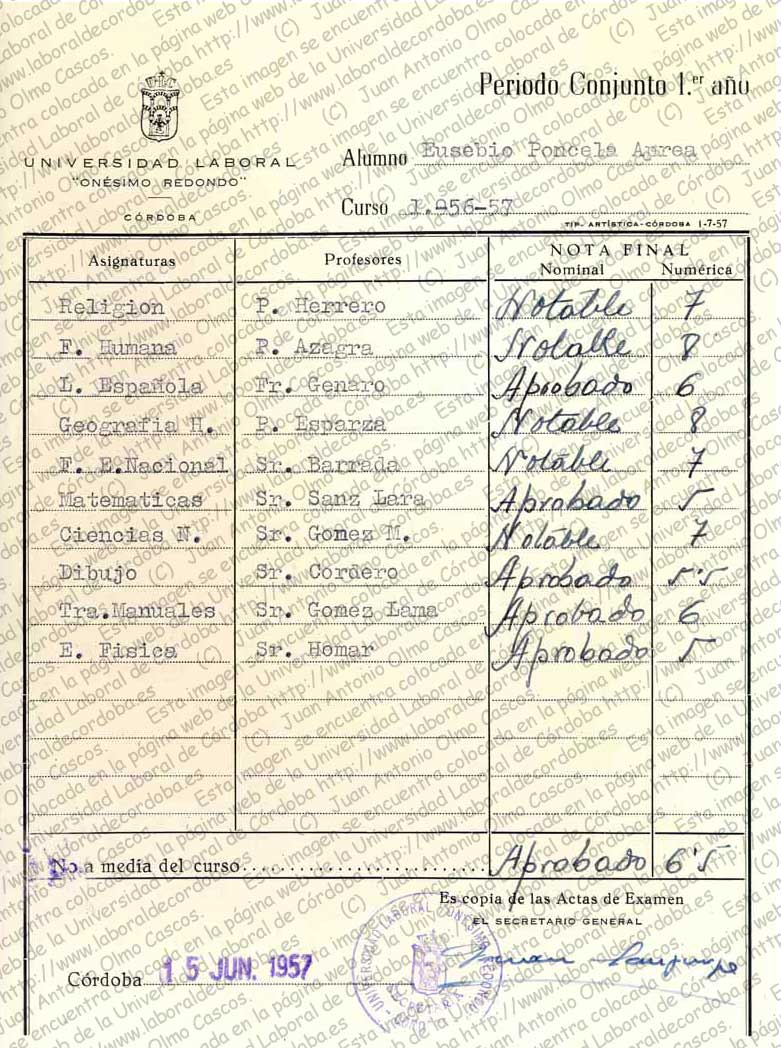 Periodo Conjunto 1.er año
UNIVERSIDAD LABORAL
"ONÉSIMO REDONDO"
CÓRDOBA
Alumno Eusebio Poncela Aprea
Curso 1.956-57
TIP. ARTÍSTICA-CÓRDOBA 1-7-57
Asignaturas Profesores NOTA FINAL
Nominal Numérica
Religion P. Herrero Notable 7
F. Humana P. Azagra Notable 8
L. Española Fr. Genaro Aprobado 6
Geografia H. P. Esparza Notable 8
F. E.Nacional Sr. Barrada Notable 7
Matematicas Sr. Sanz Lara Aprobado 5
Ciencias N. Sr. Gomez M. Notable 7
Dibujo Sr. Cordero Aprobado 5'5
Tra.Manuales Sr. Gomez Lama Aprobado 6
E. Fisica Sr. Homar Aprobado 5
No a media del curso Aprobado 6'5
Es copia de las Actas de Examen
EL SECRETARIO GENERAL
Córdoba 15 JUN. 1957
UNIVERSIDAD LABORAL ONESIMO REDONDO
SECRETARIA
(C) Juan Antonio Olmo Cascos.
Esta imagen se encuentra colocada en la página web de la Universidad Laboral de Córdoba http://www.laboraldecordoba.es